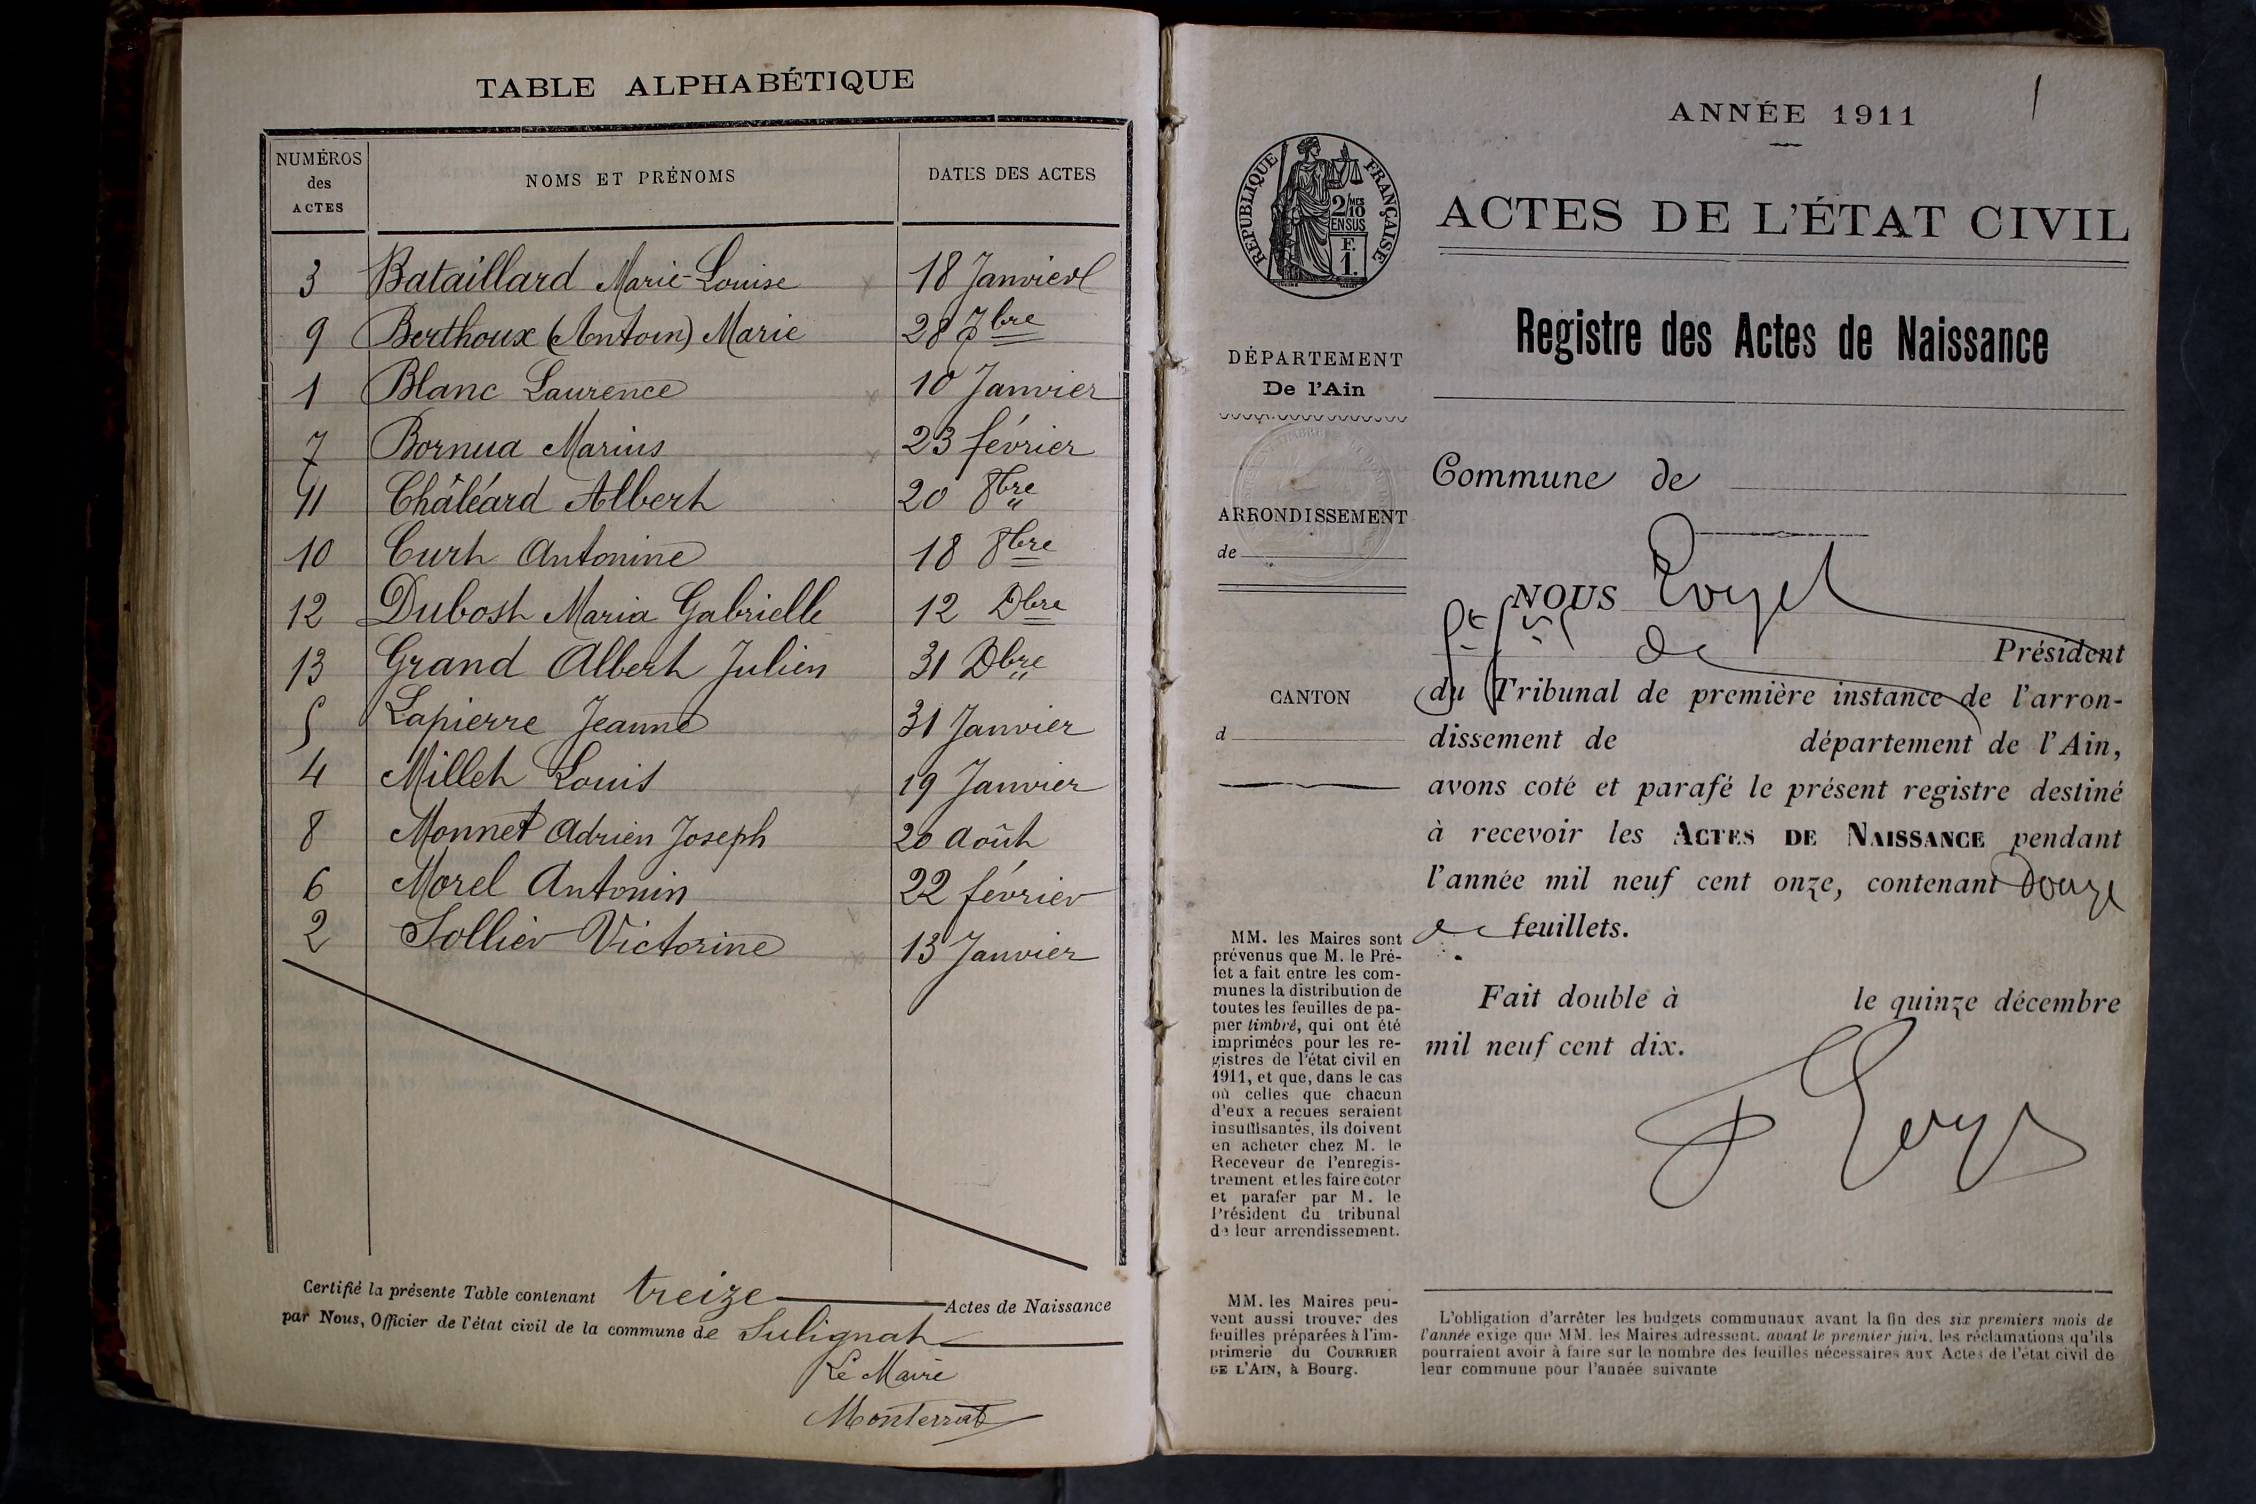 TABLE ALPHABÉTIQUE
NUMÉROS des ACTES NOMS ET PRÉNOMS DATES DES ACTES
3 Bataillard Marie-Louise 18 Janvier
9 Berthoux (Antoin) Marie 28 7bre
1 Blanc Laurence 10 Janvier
7 Bornua Marius 23 février
11 Châléard Albert 20 8bre
10 Curt Antonine 18 8bre
12 Dubost Maria Gabrielle 12 Dbre
13 Grand Albert Julien 31 Dbre
5 Lapierre Jeanne 31 Janvier
4 Millet Louis 19 Janvier
8 Monnet Adrien Joseph 20 Août
6 Morel Antonin 22 février
2 Sollier Victorine 13 Janvier
Certifié la présente Table contenant treize Actes de Naissance
par Nous, Officier de l'état civil de la commune de Sulignat
Le Maire
Monterrat
1
ANNÉE 1911
RÉPUBLIQUE FRANÇAISE
2/10 MES
EN SUS
F.
1.
ACTES DE L'ÉTAT CIVIL
Registre des Actes de Naissance
DÉPARTEMENT
De l'Ain
ARRONDISSEMENT
de
CANTON
d
MM. les Maires sont
prévenus que M. le Pré-
fet a fait entre les com-
munes la distribution de
toutes les feuilles de pa-
pier timbré, qui ont été
imprimées pour les re-
gistres de l'état civil en
1911, et que, dans le cas
où celles que chacun
d'eux a reçues seraient
insuffisantes, ils doivent
en acheter chez M. le
Receveur de l'enregis-
trement et les faire coter
et parafer par M. le
Président du tribunal
de leur arrondissement.
MM. les Maires peu-
vent aussi trouver des
feuilles préparées à l'im-
primerie du COURRIER
DE L'AIN, à Bourg.
Commune de
NOUS
Président
du Tribunal de première instance de l'arron-
dissement de département de l'Ain,
avons coté et parafé le présent registre destiné
à recevoir les ACTES DE NAISSANCE pendant
l'année mil neuf cent onze, contenant douze
feuillets.
Fait double à le quinze décembre
mil neuf cent dix.
L'obligation d'arrêter les budgets communaux avant la fin des six premiers mois de
l'année exige que MM. les Maires adressent, avant le premier juin, les réclamations qu'ils
pourraient avoir à faire sur le nombre des feuilles nécessaires aux Actes de l'état civil de
leur commune pour l'année suivante